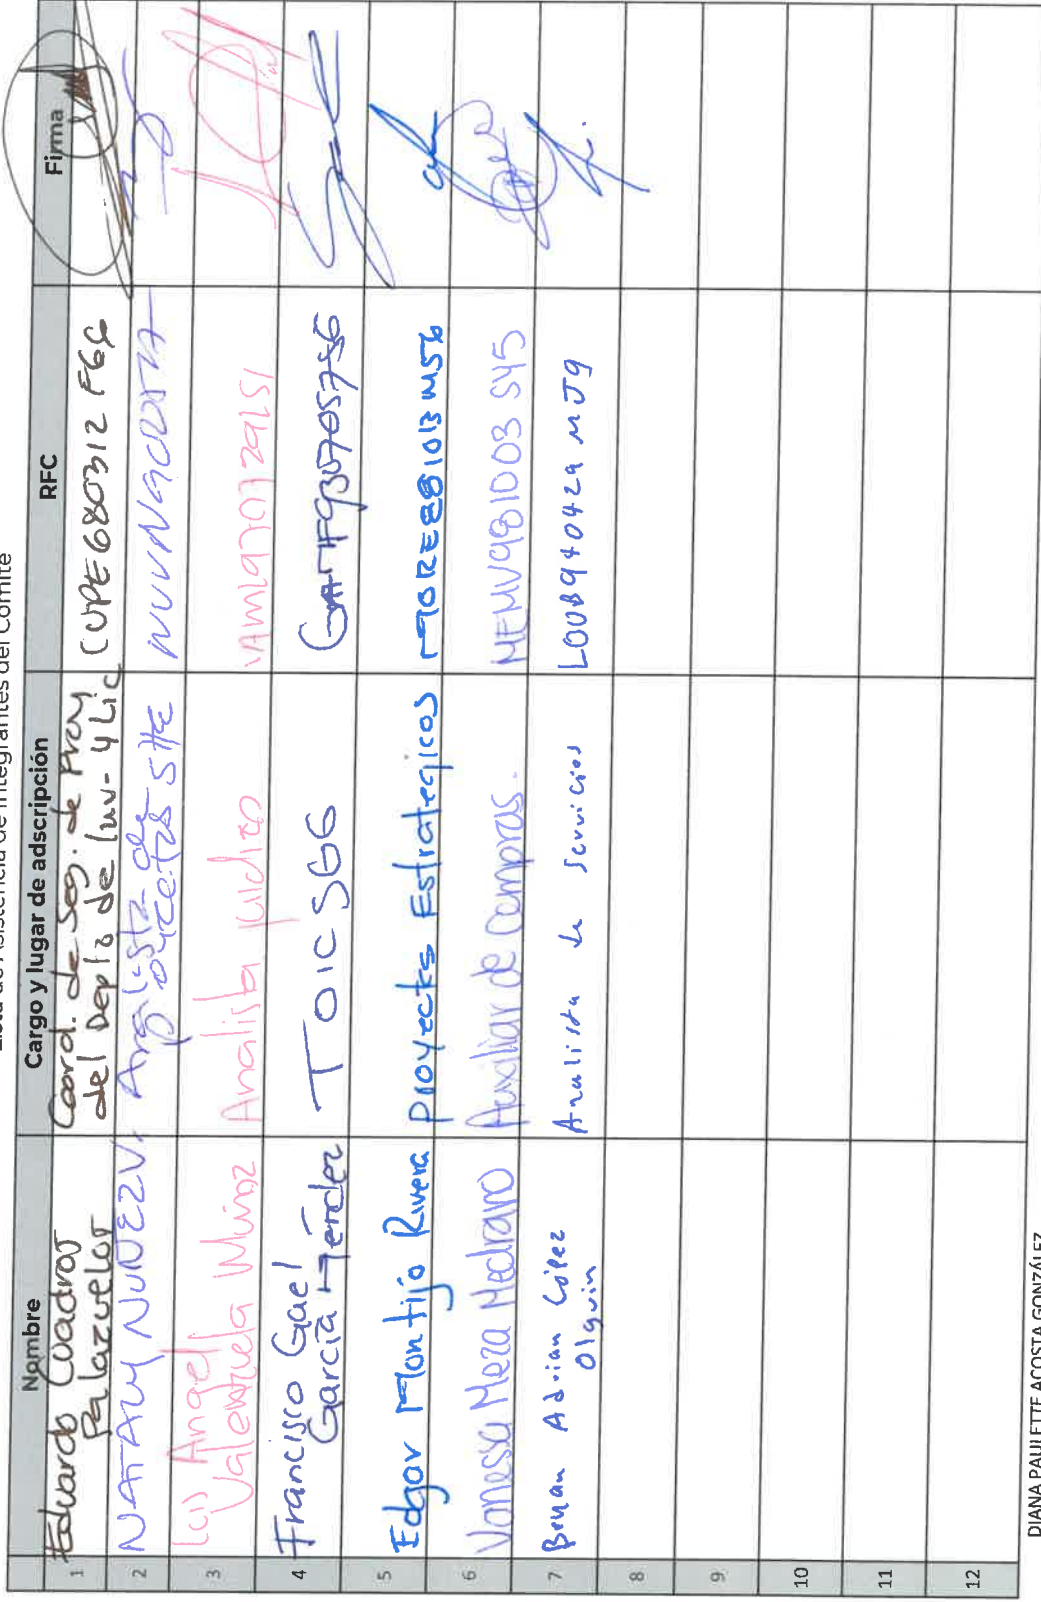 Lista de Asistencia de Integrantes del Comité
Nombre Cargo y lugar de adscripción RFC Firma
1 Eduardo Cuadros Palazuelos Coord. de Seg. de Proy. del Depto de Inv. y Lic CUPE680312 F66
2 NATALY NUÑEZ V. Analista de SHE
3 Luis Angel Valenzuela Muñoz Analista juridico
4 Francisco Gael García Méndez TOICSGG
5 Edgar Montijo Rivera Proyectos Estrategicos MORE881013M56
6 Vanessa Meza Medrano Auxiliar de Compras. MEMV981003 SY5
7 Brenan Adrian López Olguin Analista de Servicios LOUB940429 MJ9
8
9
10
11
12
DIANA PAULETTE ACOSTA GONZÁLEZ